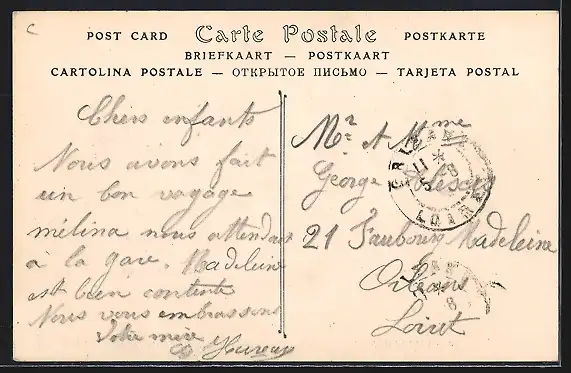 c
POST CARD Carte Postale POSTKARTE
BRIEFKAART — POSTKAART
CARTOLINA POSTALE — ОТКРЫТОЕ ПИСЬМО — TARJETA POSTAL
Chers enfants
Nous avons fait
un bon voyage
mélina nous attendais
à la gare. Madeleine
est bien contente
Nous vous embrassons
Votre mère
Mr et Mme
George
21 Faubourg Madeleine
Orléans
Loiret